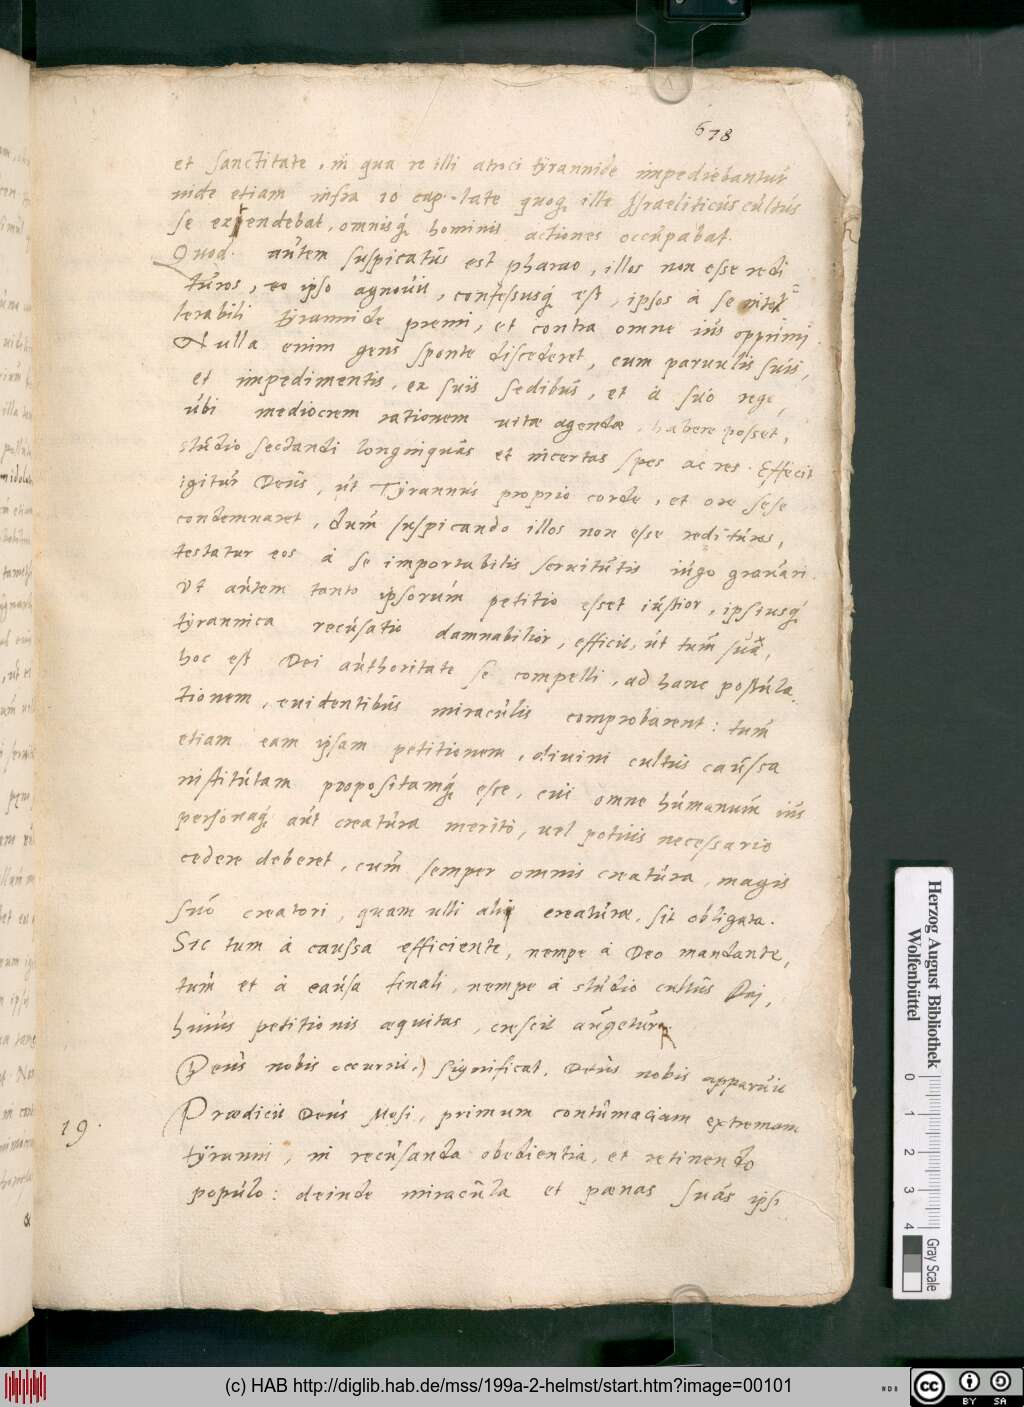 678
et sanctitate, in qua re illi atroci tyrannide impediebantur
inde etiam infra 10 cap. late quoq; ille Israeliticus cultus
se extendebat, omnisq; hominis actiones occupabat.
Quod autem suspicatus est pharao, illos non esse redi
turos, eo ipso agnovit, confessusq; est, ipsos à se into
lerabili tyrannide premi, et contra omne ius opprimi.
Nulla enim gens sponte discederet, cum parvulis suis,
et impedimentis, ex suis sedibus, et à suo rege,
ubi mediocrem rationem vitæ agendæ, habere posset,
studio sectandi longinquas et incertas spes ac res. Effecit
igitur Deus, ut Tyrannus proprio corde, et ore sese
condemnaret, dum suspicando illos non esse redituros,
testatur eos à se importabilis servitutis iugo gravari.
Ut autem tanto ipsorum petitio esset iustior, ipsiusq;
tyrannica recusatio damnabilior, efficit, ut tum sua,
hoc est Dei authoritate se compelli, ad hanc postula
tionem, evidentibus miraculis comprobarent: tum
etiam eam ipsam petitionem, divini cultus caussa
institutam propositamq; esse, cui omne humanum ius
personaq; aut creatura merito, vel potius necessario
cedere deberet, cum semper omnis creatura, magis
suo creatori, quam ulli alii creaturæ, sit obligata.
Sic tum à caussa efficiente, nempe à Deo mandante,
tum et à causa finali, nempe à studio cultus Dei,
huius petitionis æquitas, crescit augetur.
Deus nobis occurrit.) significat, Deus nobis apparuit
19. Prædicit Deus Mosi, primum contumaciam extremam
tyranni, in recusanda obedientia, et retinendo
populo: deinde miracula et pænas suas ipsi
Herzog August Bibliothek
Wolfenbüttel
0 1 2 3 4
Gray Scale
(c) HAB http://diglib.hab.de/mss/199a-2-helmst/start.htm?image=00101
cc BY SA